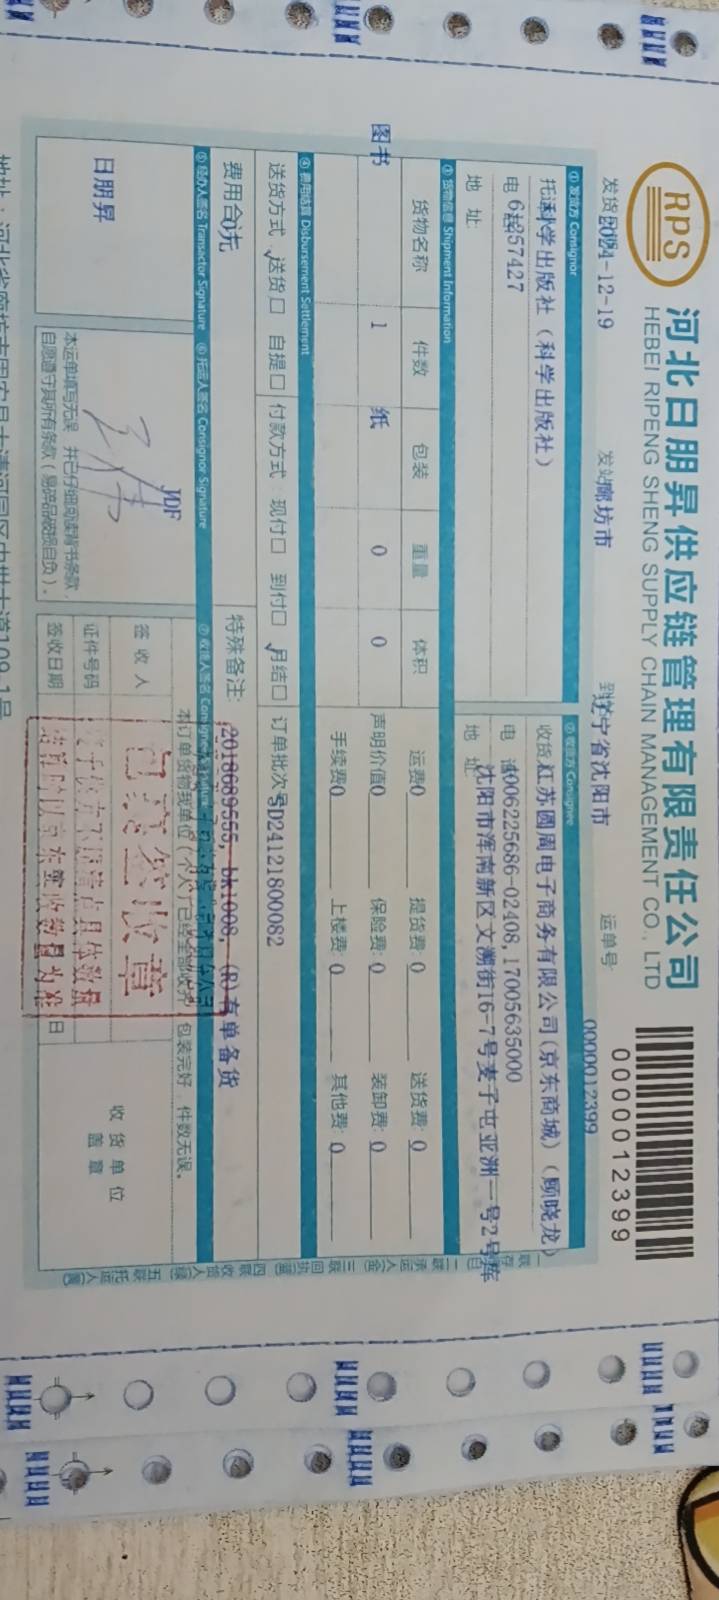 RPS
河北日朋昇供应链管理有限责任公司
HEBEI RIPENG SHENG SUPPLY CHAIN MANAGEMENT CO., LTD
0000012399
发货 2024-12-19 发站 廊坊市 到 辽宁省沈阳市 运单号 0000012399
① 发货方 Consignor
托运 科学出版社（科学出版社）
电话 61357427
地 址
② 收货方 Consignee
收货 江苏圆周电子商务有限公司(京东商城)（顾晓龙）
电 话 4006225686-02408,17005635000
地 址 沈阳市浑南新区文溯街16-7号麦子屯亚洲一号2号库
③ 货物信息 Shipment Information
货物名称 件数 包装 重量 体积
图书 1 纸 0 0
运费 0 提货费: 0 送货费: 0
声明价值 0 保险费: 0 装卸费: 0
手续费 0 上楼费: 0 其他费: 0
④ 费用结算 Disbursement Settlement
送货方式: ✓送货□ 自提□ 付款方式: 现付□ 到付□ ✓月结□ 订单批次号 SD24121800082
费用合 0元
特殊备注: 2018689555, bk1008, (R)有单备货
⑤ 经办人签名 Transactor Signature
日朋昇
⑥ 托运人签名 Consignor Signature
YDF
本运单填写无误，并已仔细阅读背书条款，
自愿遵守其所有条款(易碎品破损自负)。
⑦ 收货人签名 Consignee Signature
本订单货物我单位(个人)已经全部收齐，包装完好，件数无误。
签 收 人
证件号码
签收日期 日
收 货 单 位
盖 章
一联存 二联承运人 三联回执 四联收货人 五联托运人